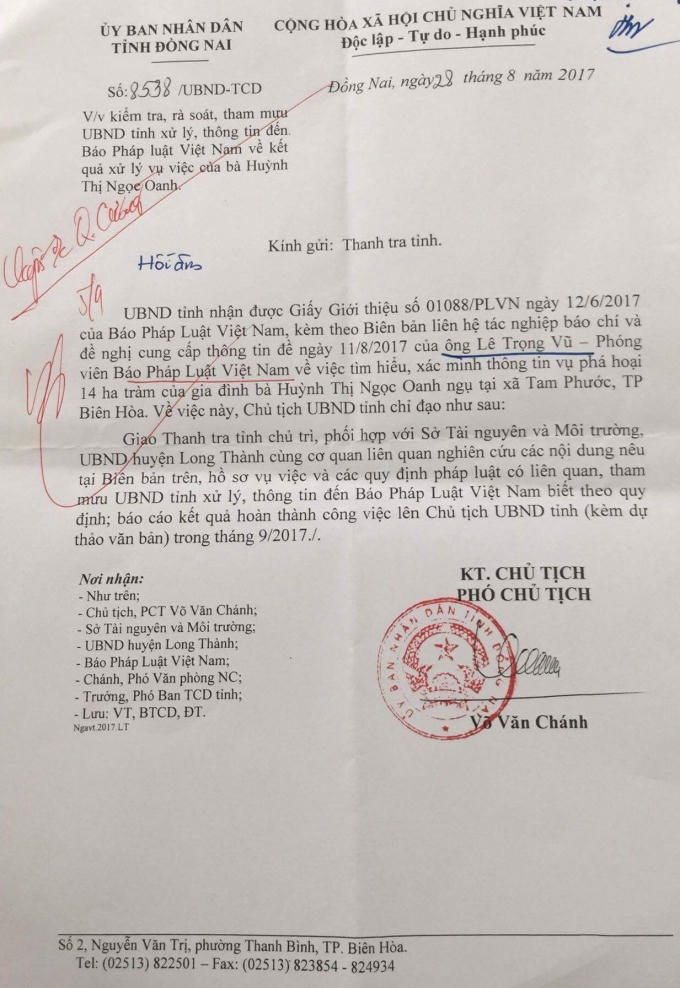 ỦY BAN NHÂN DÂN
TỈNH ĐỒNG NAI
CỘNG HÒA XÃ HỘI CHỦ NGHĨA VIỆT NAM
Độc lập - Tự do - Hạnh phúc
Số: 8538 /UBND-TCD
Đồng Nai, ngày 28 tháng 8 năm 2017
V/v kiểm tra, rà soát, tham mưu
UBND tỉnh xử lý, thông tin đến
Báo Pháp luật Việt Nam về kết
quả xử lý vụ việc của bà Huỳnh
Thị Ngọc Oanh.
Kính gửi: Thanh tra tỉnh.
Hồi âm
5/9
UBND tỉnh nhận được Giấy Giới thiệu số 01088/PLVN ngày 12/6/2017
của Báo Pháp Luật Việt Nam, kèm theo Biên bản liên hệ tác nghiệp báo chí và
đề nghị cung cấp thông tin đề ngày 11/8/2017 của ông Lê Trọng Vũ – Phóng
viên Báo Pháp Luật Việt Nam về việc tìm hiểu, xác minh thông tin vụ phá hoại
14 ha tràm của gia đình bà Huỳnh Thị Ngọc Oanh ngụ tại xã Tam Phước, TP
Biên Hòa. Về việc này, Chủ tịch UBND tỉnh chỉ đạo như sau:
Giao Thanh tra tỉnh chủ trì, phối hợp với Sở Tài nguyên và Môi trường,
UBND huyện Long Thành cùng cơ quan liên quan nghiên cứu các nội dung nêu
tại Biên bản trên, hồ sơ vụ việc và các quy định pháp luật có liên quan, tham
mưu UBND tỉnh xử lý, thông tin đến Báo Pháp Luật Việt Nam biết theo quy
định; báo cáo kết quả hoàn thành công việc lên Chủ tịch UBND tỉnh (kèm dự
thảo văn bản) trong tháng 9/2017./.
Nơi nhận:
- Như trên;
- Chủ tịch, PCT Võ Văn Chánh;
- Sở Tài nguyên và Môi trường;
- UBND huyện Long Thành;
- Báo Pháp Luật Việt Nam;
- Chánh, Phó Văn phòng NC;
- Trưởng, Phó Ban TCD tỉnh;
- Lưu: VT, BTCD, ĐT.
Ngavt.2017.LT
KT. CHỦ TỊCH
PHÓ CHỦ TỊCH
ỦY BAN NHÂN DÂN TỈNH ĐỒNG NAI
Võ Văn Chánh
Số 2, Nguyễn Văn Trị, phường Thanh Bình, TP. Biên Hòa.
Tel: (02513) 822501 – Fax: (02513) 823854 - 824934